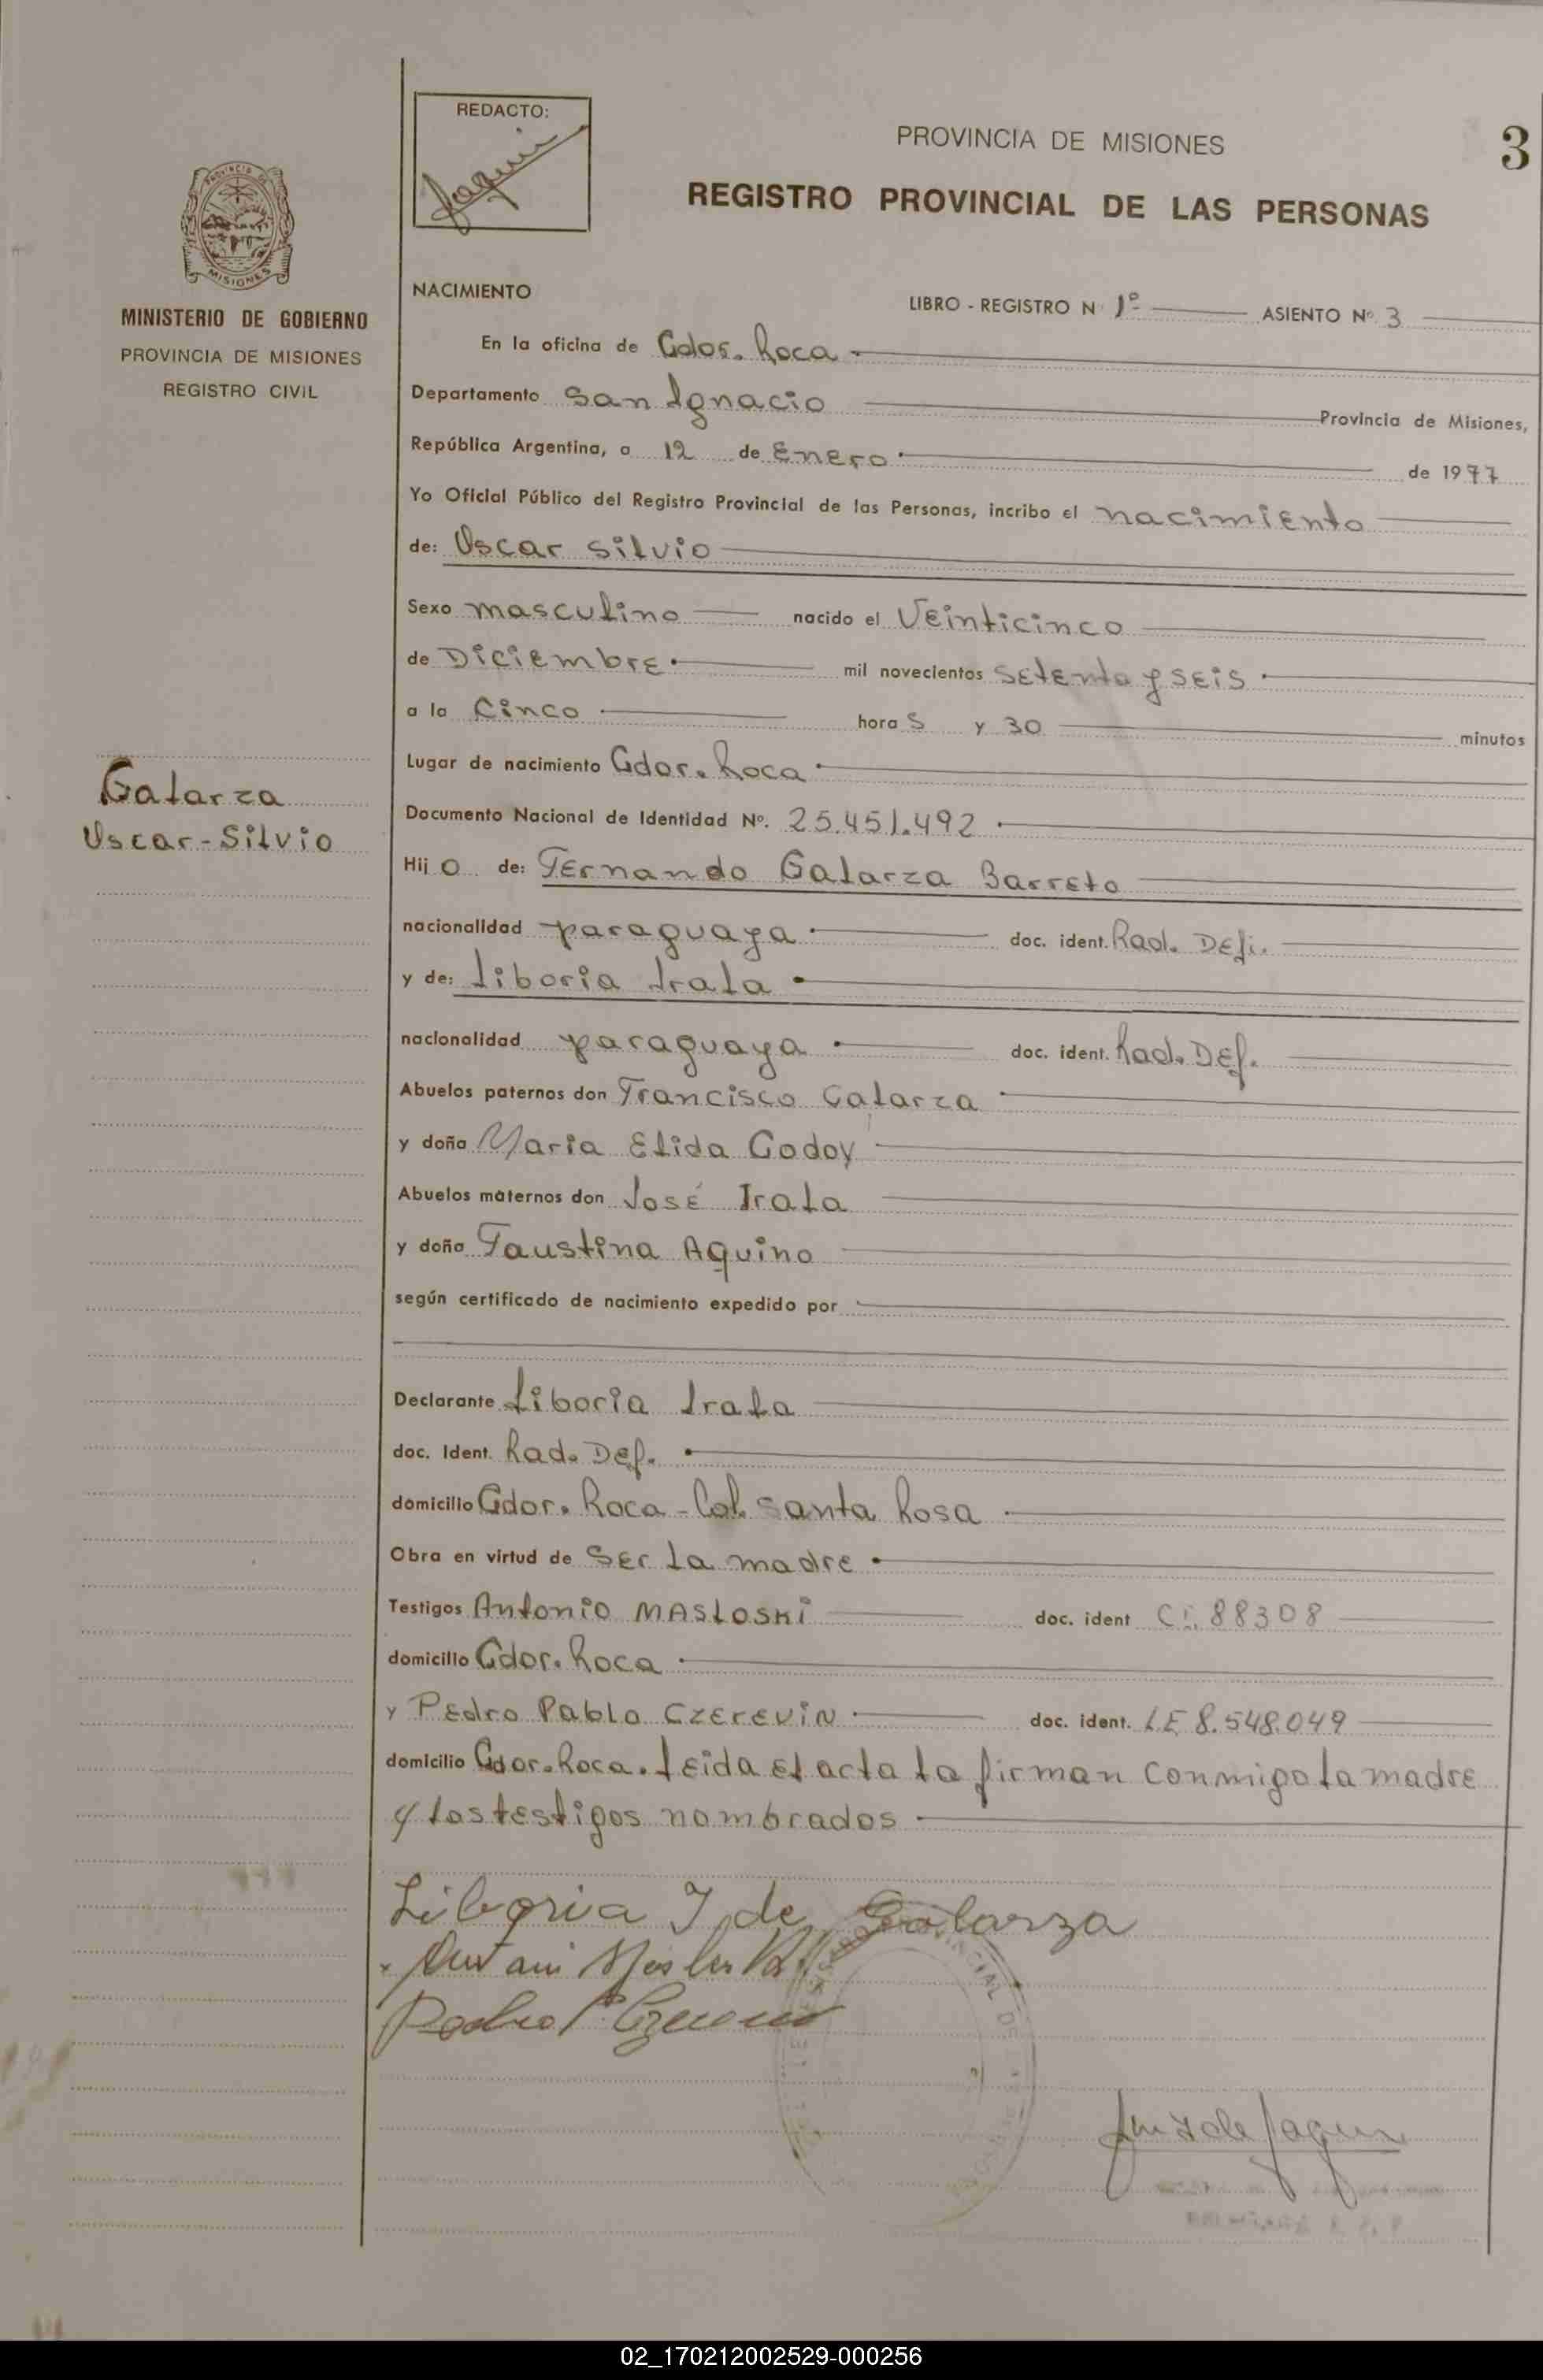 REDACTO:
PROVINCIA DE MISIONES
3
REGISTRO PROVINCIAL DE LAS PERSONAS
MISIONES
MINISTERIO DE GOBIERNO
PROVINCIA DE MISIONES
REGISTRO CIVIL
NACIMIENTO
LIBRO - REGISTRO N 1º ASIENTO Nº 3
En la oficina de Gdor. Roca
Departamento San Ignacio Provincia de Misiones,
República Argentina, a 12 de Enero de 1977
Yo Oficial Público del Registro Provincial de las Personas, incribo el nacimiento
de: Oscar Silvio
Sexo masculino nacido el Veinticinco
de Diciembre mil novecientos setenta y seis
a la Cinco hora s y 30 minutos
Lugar de nacimiento Gdor. Roca
Galarza
Oscar-Silvio
Documento Nacional de Identidad Nº. 25.451.492
Hij o de: Fernando Galarza Barreto
nacionalidad paraguaya doc. ident. Rad. Defi.
y de: Liboria Irala
nacionalidad paraguaya doc. ident. Rad. Def.
Abuelos paternos don Francisco Galarza
y doña Maria Elida Godoy
Abuelos maternos don José Irala
y doña Faustina Aquino
según certificado de nacimiento expedido por
Declarante Liboria Irala
doc. Ident. Rad. Def.
domicilio Gdor. Roca - Col. Santa Rosa
Obra en virtud de Ser la madre
Testigos Antonio MASLOSKI doc. ident C.I. 88308
domicilio Gdor. Roca
y Pedro Pablo CZEREVIN doc. ident. L.E 8.548.049
domicilio Gdor. Roca. Leida el acta la firman conmigo la madre
y los testigos nombrados
Liboria I de Galarza
Pedro P.
02_170212002529-000256